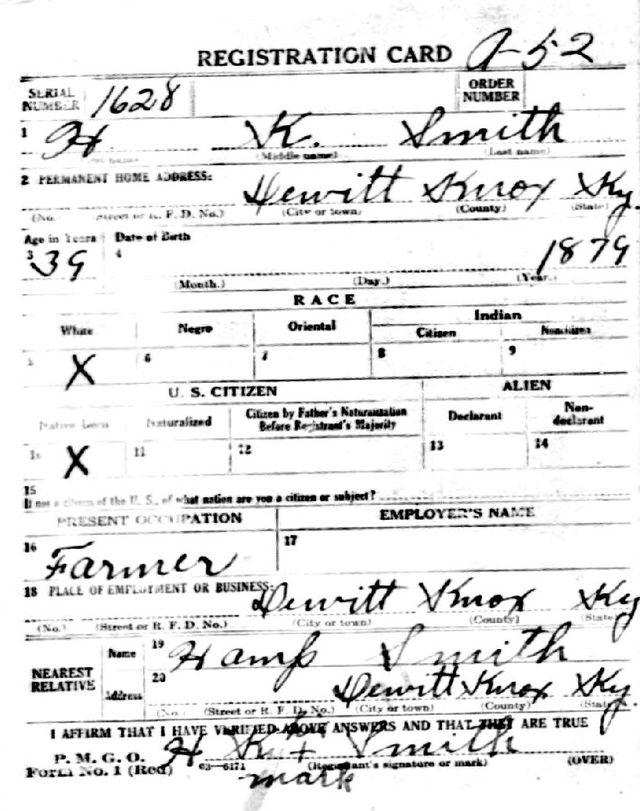 REGISTRATION CARD A-52
SERIAL NUMBER 1628 ORDER NUMBER
1 H K. Smith
(Middle name) (Last name)
2 PERMANENT HOME ADDRESS: Dewitt Knox Ky.
(No. Street or R. F. D. No.) (City or town) (County) (State)
Age in Years Date of Birth
3 39 4 1879
(Month.) (Day.) (Year.)
RACE
White Negro Oriental Indian
Citizen Noncitizen
5 X 6 7 8 9
U. S. CITIZEN ALIEN
Native Born Naturalized Citizen by Father's Naturalization Before Registrant's Majority Declarant Non-declarant
10 X 11 12 13 14
15
If not a citizen of the U. S., of what nation are you a citizen or subject?
PRESENT OCCUPATION EMPLOYER'S NAME
16 Farmer 17
18 PLACE OF EMPLOYMENT OR BUSINESS: Dewitt Knox Ky
(No.) (Street or R. F. D. No.) (City or town) (County) (State)
NEAREST RELATIVE Name 19 Hamp Smith
Address 20 Dewitt Knox Ky.
(No.) (Street or R. F. D. No.) (City or town) (County) (State)
I AFFIRM THAT I HAVE VERIFIED ABOVE ANSWERS AND THAT THEY ARE TRUE
his
P. M. G. O. H K x Smith
Form No. 1 (Red) 03—6171 (Registrant's signature or mark) (OVER)
mark